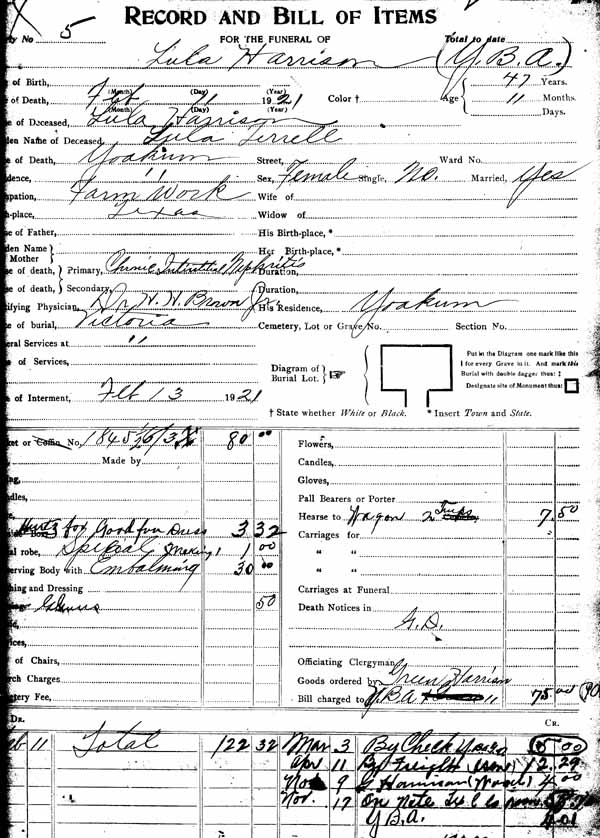 RECORD AND BILL OF ITEMS
ry No 5 FOR THE FUNERAL OF Total to date
Lula Harrison (Y.B.A.)
e of Birth, (Month) (Day) (Year) 47 Years.
e of Death, Feb 11 1921 Color † Age 11 Months.
(Month) (Day) (Year) Days.
e of Deceased, Lula Harrison
den Name of Deceased, Lula Terrell
e of Death, Yoakum Street, Ward No.
dence, " Sex, Female Single, No. Married, Yes
pation, Farm Work Wife of
h-place, Texas Widow of
e of Father, His Birth-place, *
den Name } Her Birth-place, *
Mother
e of death, } Primary, Chronic Intestitial Nephritis Duration,
e of death, } Secondary, Duration,
ifying Physician, Dr. W. W. Brown Jr. His Residence, Yoakum
e of burial, Victoria Cemetery, Lot or Grave No. Section No.
eral Services at "
e of Services,
Diagram of Burial Lot. } ☞
Put in the Diagram one mark like this
I for every Grave in it. And mark this
Burial with double dagger thus: ‡
Designate site of Monument thus: □
e of Interment, Feb 13 1921
† State whether White or Black. * Insert Town and State.
et or Coffin, No. 80 00 Flowers,
Made by Candles,
Gloves,
dles, Pall Bearers or Porter
Hearse to Wagon 2 Trips 7.50
for Dress 3 32 Carriages for
l robe, Special making 1 00 " "
erving Body with Embalming 30 00 " "
hing and Dressing Carriages at Funeral
50 Death Notices in
G.D.
ices,
of Chairs, Officiating Clergyman
rch Charges Goods ordered by Green Harrison
gery Fee, Bill charged to Y.B.A. 75 00 (90
Dr. Cr.
eb 11 Total 122 32 Mar 3 By Check 00
Apr 11 By Freight 12.29
Nov 9 G Harrison 4 00
Nov. 17 On Note
Y.B.A.